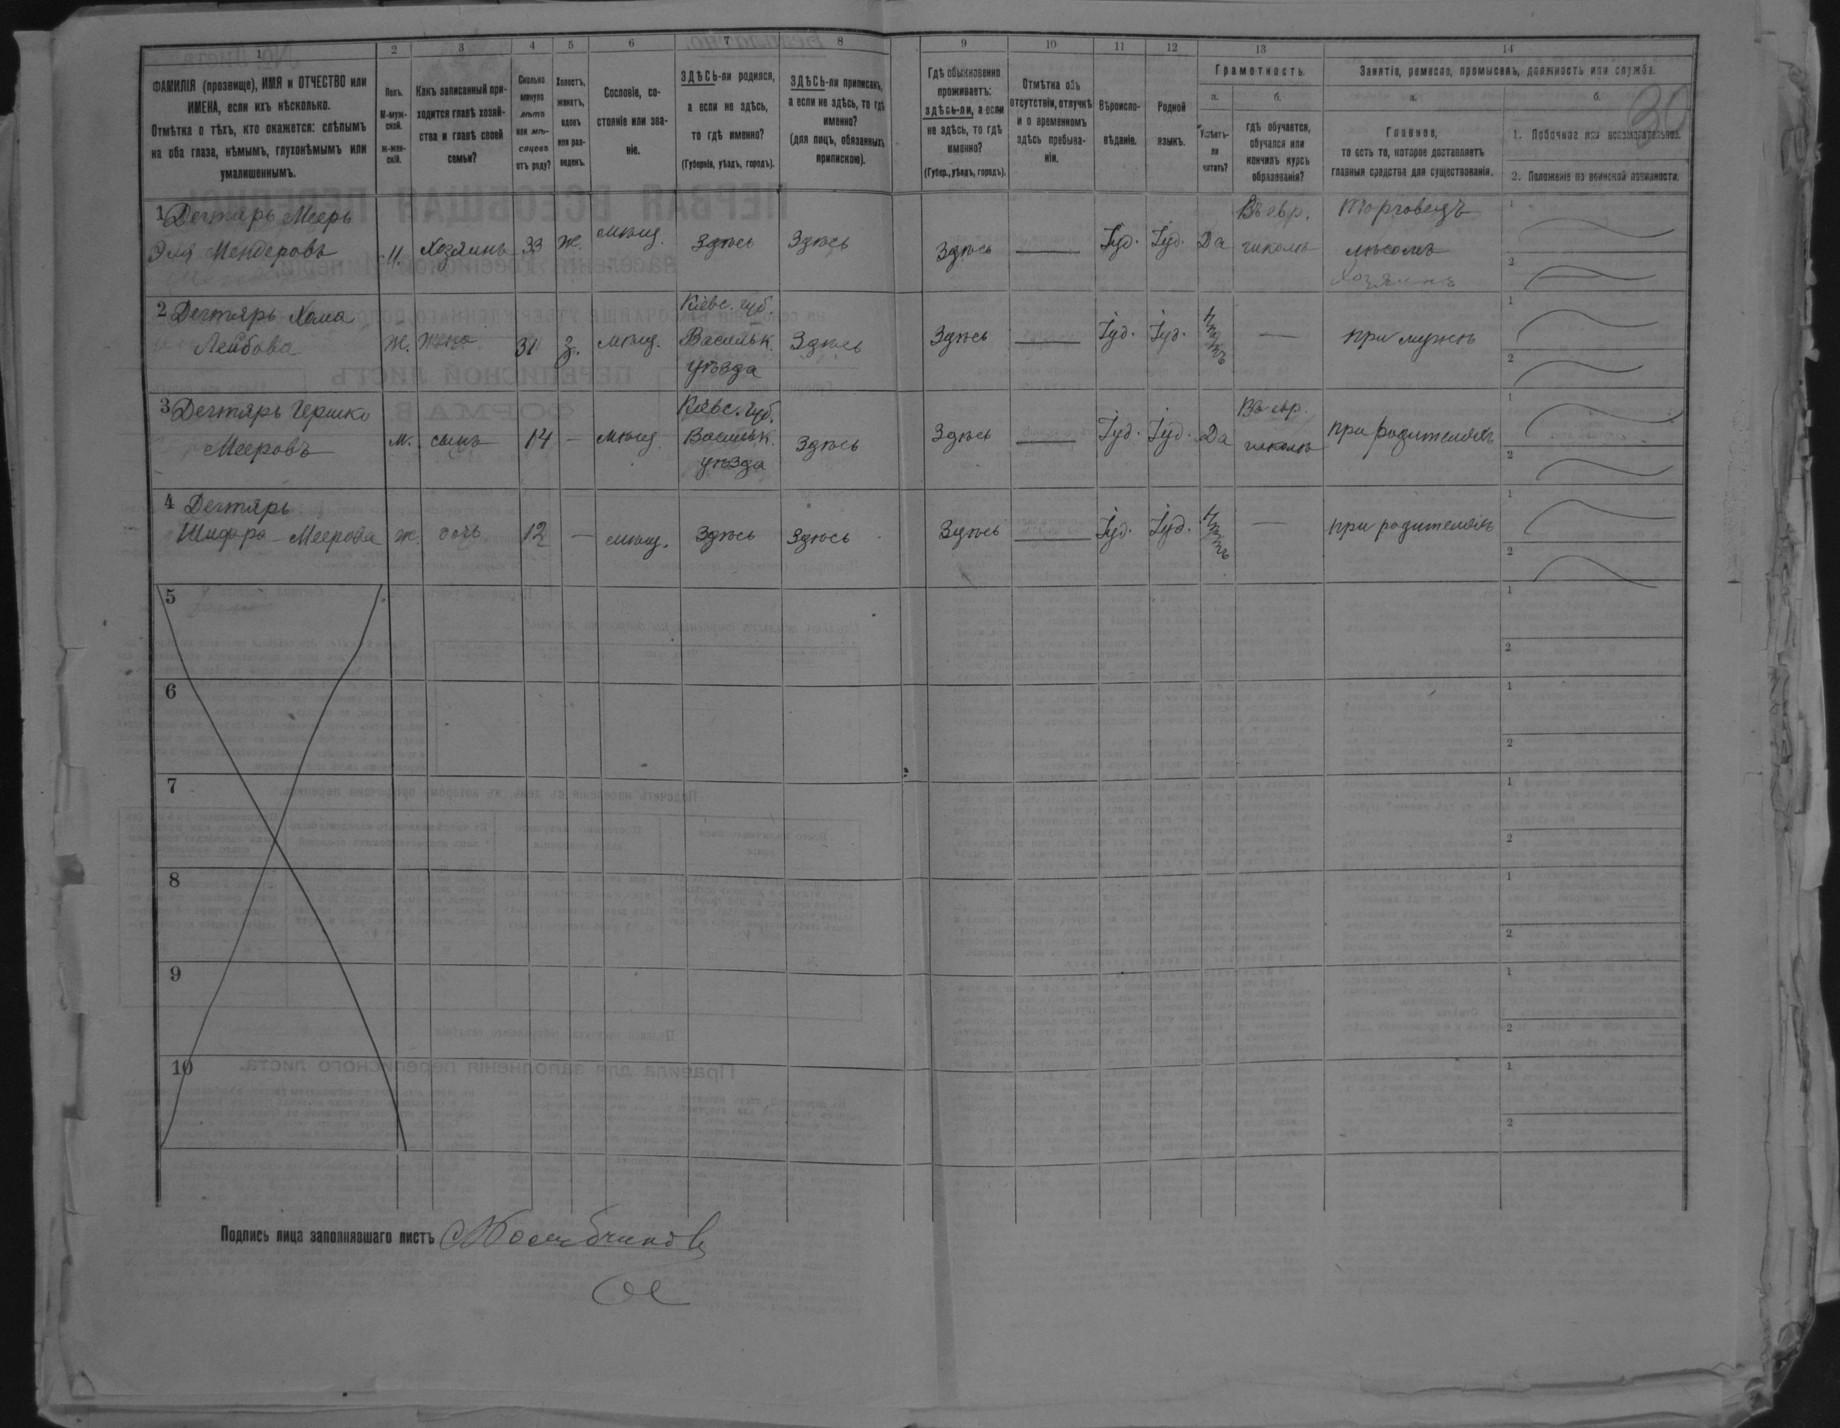 1 2 3 4 5 6 7 8 9 10 11 12 13 14
ФАМИЛІЯ (прозвище), ИМЯ и ОТЧЕСТВО или
ИМЕНА, если ихъ нѣсколько.
Отмѣтка о тѣхъ, кто окажется: слѣпымъ
на оба глаза, нѣмымъ, глухонѣмымъ или
умалишеннымъ.
Полъ.
М-муж-
ской.
ж-жен-
скій.
Какъ записанный при-
ходится главѣ хозяй-
ства и главѣ своей
семьи?
Сколько
минуло
лѣтъ
или мѣ-
сяцевъ
отъ роду?
Холостъ,
женатъ,
вдовъ
или раз-
веденъ.
Сословіе, со-
стояніе или зва-
ніе.
ЗДѢСЬ-ли родился,
а если не здѣсь,
то гдѣ именно?
(Губернія, уѣздъ, городъ).
ЗДѢСЬ-ли приписанъ,
а если не здѣсь, то гдѣ
именно?
(для лицъ, обязанныхъ
припиской).
Гдѣ обыкновенно
проживаетъ:
здѣсь-ли, а если
не здѣсь, то гдѣ
именно?
(Губер., уѣздъ, городъ).
Отмѣтка объ
отсутствіи, отлучкѣ
и о временномъ
здѣсь пребыва-
ніи.
Вѣроиспо-
вѣданіе.
Родной
языкъ.
Грамотность.
а.
Умѣетъ-
ли
читать?
б.
гдѣ обучается,
обучался или
кончилъ курсъ
образованія?
Занятіе, ремесло, промыселъ, должность или служба.
а.
Главное,
то есть то, которое доставляетъ
главныя средства для существованія.
б.
1. Побочное или вспомогательное.
2. Положеніе по воинской повинности.
30
1 Дегтярь Мееръ
Эля Мендеровъ М. Хозяинъ 33 Ж. мѣщ. Здѣсь Здѣсь Здѣсь — Іуд. Іуд. Да Въ евр. школѣ Торговецъ
лѣсомъ
Хозяинъ
1
2
2 Дегтярь Хома
Лейбова Ж. жена 31 З. мѣщ. Кіевс. губ.
Васильк.
уѣзда Здѣсь Здѣсь — Іуд. Іуд. Нѣтъ — при мужѣ
1
2
3 Дегтярь Гершко
Мееровъ м. сынъ 14 — мѣщ. Кіевс. губ.
Васильк.
уѣзда Здѣсь Здѣсь — Іуд. Іуд. Да Въ евр. школѣ при родителяхъ
1
2
4 Дегтярь
Шифра Меерова ж. дочь 12 — мѣщ. Здѣсь Здѣсь Здѣсь — Іуд. Іуд. Нѣтъ — при родителяхъ
1
2
5 1
2
6 1
2
7 1
2
8 1
2
9 1
2
10 1
2
Подпись лица заполнявшаго листъ